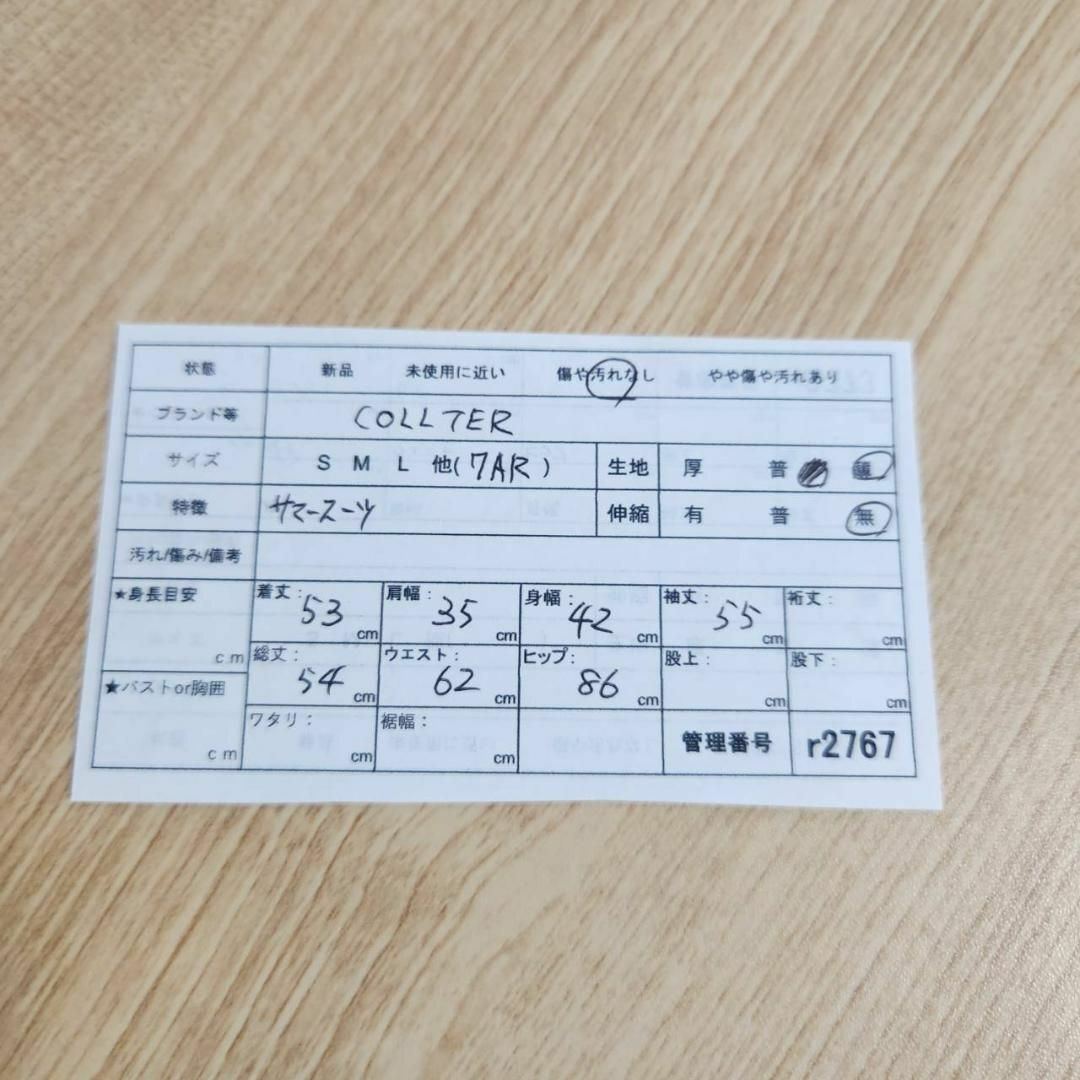 状態 新品 未使用に近い 傷や汚れなし やや傷や汚れあり
ブランド等 COLLTER
サイズ S M L 他(7AR) 生地 厚 普 薄
特徴 サマースーツ 伸縮 有 普 無
汚れ/傷み/備考
★身長目安 cm 着丈: 53 cm 肩幅: 35 cm 身幅: 42 cm 袖丈: 55 cm 裄丈: cm
★バストor胸囲 cm 総丈: 54 cm ウエスト: 62 cm ヒップ: 86 cm 股上: cm 股下: cm
ワタリ: cm 裾幅: cm 管理番号 r2767